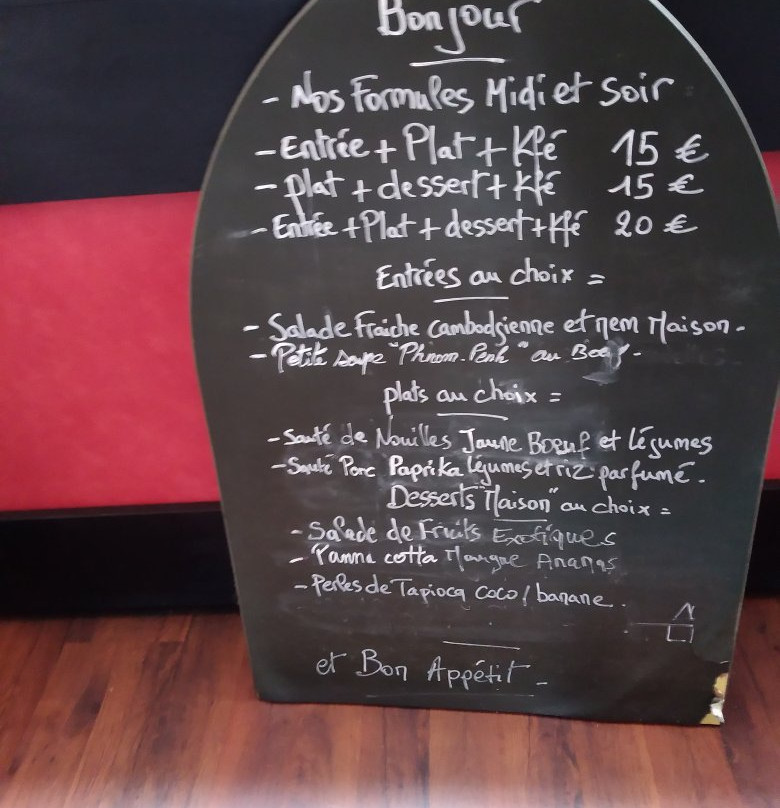 Bonjour
- Nos Formules Midi et Soir
- Entrée + Plat + Kfé 15 €
- plat + dessert + Kfé 15 €
- Entrée + Plat + dessert + Kfé 20 €
Entrées au choix =
- Salade Fraiche cambodgienne et nem Maison -
- Petite soupe "Phnom-Penh" au Boeuf -
plats au choix =
- Sauté de Nouilles Jaune Boeuf et légumes
- Sauté Porc Paprika légumes et riz parfumé.
Desserts "Maison" au choix =
- Salade de Fruits Exotiques
- Panna cotta Mangue Ananas
- Perles de Tapioca coco / banane.
et Bon Appétit -